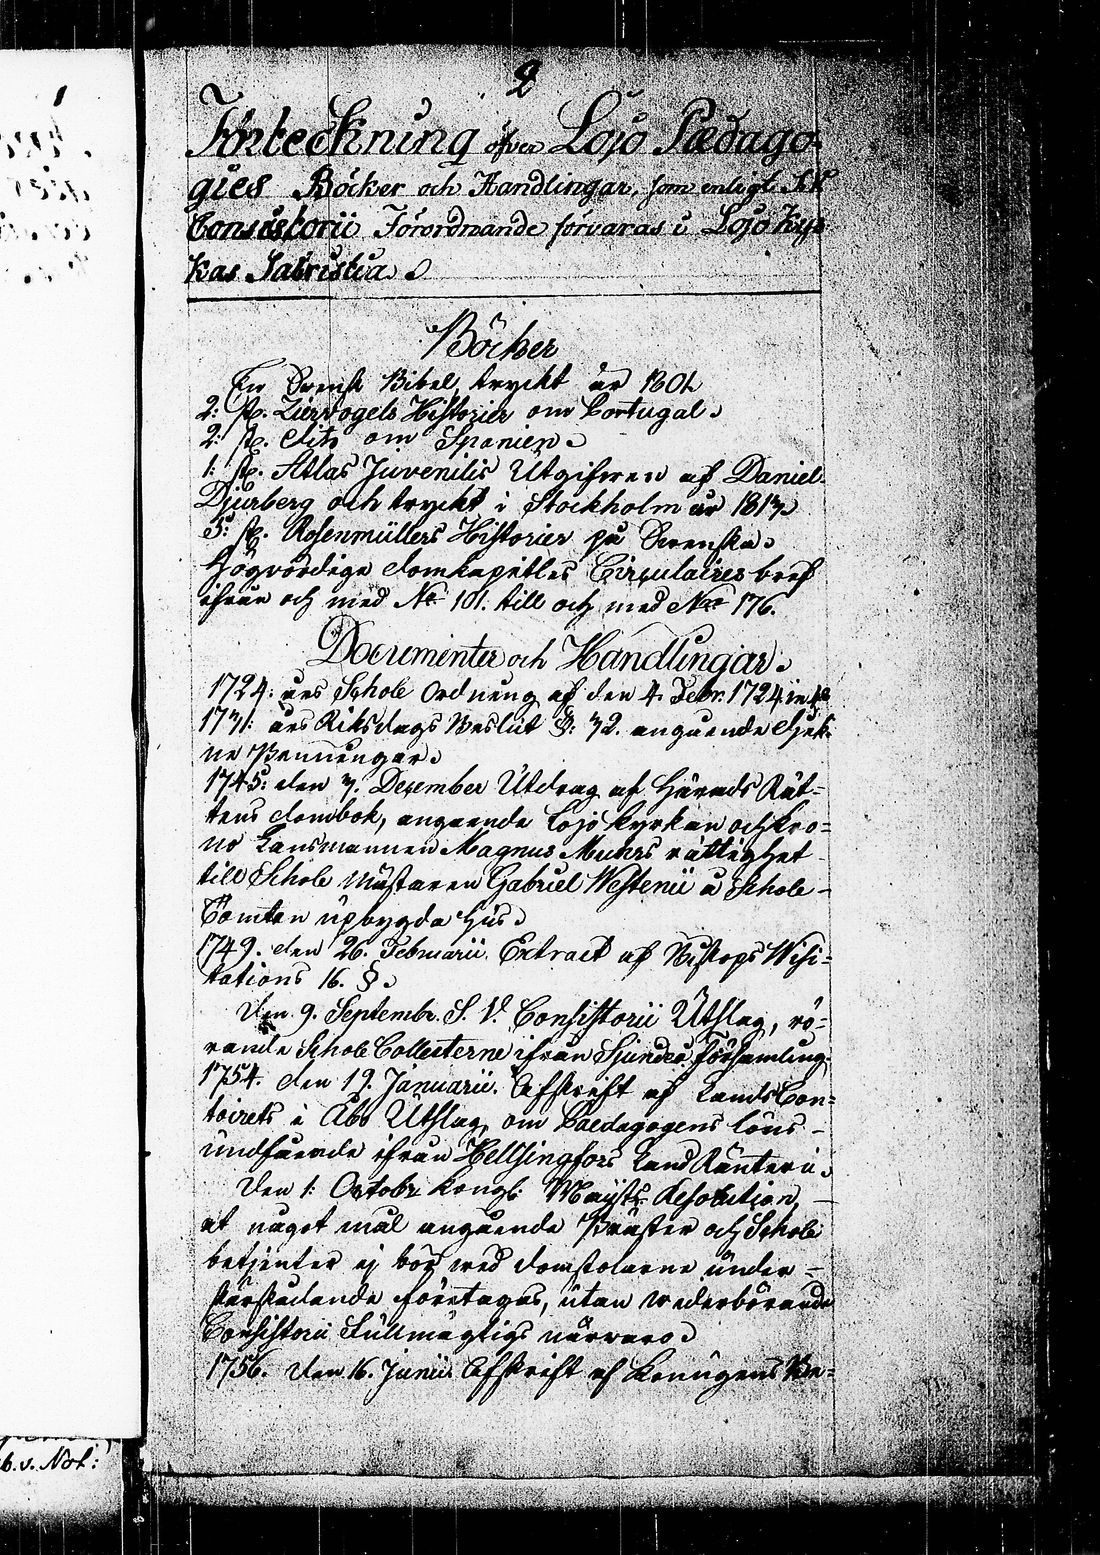 2
Förteckning öfver Lojo Pædago-
gies Böcker och Handlingar, som enligt
Consistorii Förordnande förvaras i Lojo Kyr-
kas Sacristia.
Böcker
En Svensk Bibel tryckt år 1802
2: st. Ziervogels Historier om Portugal.
2: st. dito om Spanien.
1: st. Atlas Juvenilis Utgifven af Daniel
Djurberg och tryckt i Stockholm år 1817.
5: st. Rosenmüllers Historier på Svenska.
Högvördige Domkapitles Circulaires bref
ifrån och med No 101. till och med Nro 176.
Documenter och Handlingar.
1724: års Schole Ordning af den 4. Febr. 1724 in 4to
1731: års Riksdags Beslut §: 32. angående Djek-
ne Penningar.
1745: den 7. December Utdrag af Härads Rät-
tens dombok, angående Lojo Kyrkan och Kro-
no Länsmannen Magnus Muhrs rättighet
till Schole Mästaren Gabriel Westenii å Schole-
Tomten upbygda Hus.
1749. den 26. Februarii. Extract af Biskops Wisi-
tations 16. §.
Den 9. Septembr. S. V. Consistorii Utslag, rö-
rande Schole Collecterne ifrån Sjundeå Församling.
1754. den 19. Januarii. Afskrift af LandsCon-
toirets i Åbo Utslag, om Paedagogens löns-
undfående ifrån Hellsingfors Land Ränteri.
Den 1: Octobr. Kongl: Maysts Resolution,
at något mål angående Präster och Schole
betjenter ej bör wed domstolarne under-
stås företagas, utan wederbörande
Consistorii Fullmägtigs närwaro.
1756. Den 16. Junii Afskrift af Konungens Be-
1
b. v. Not: